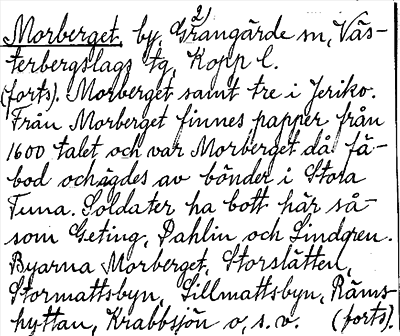 2)
Morberget, by, Grangärde sn, Väs-
terbergslags tg, Kopp l.
(forts). Morberget samt tre i Jeriko.
Från Morberget finnes papper från
1600 talet och var Morberget då fä-
bod och ägdes av bönder i Stora
Tuna. Soldater ha bott här så-
som Geting, Dahlin och Lindgren.
Byarna Morberget, Storslätten,
Stormattsbyn, Lillmattsbyn, Räms-
hyttan, Krabbsjön o, s. v. (forts).